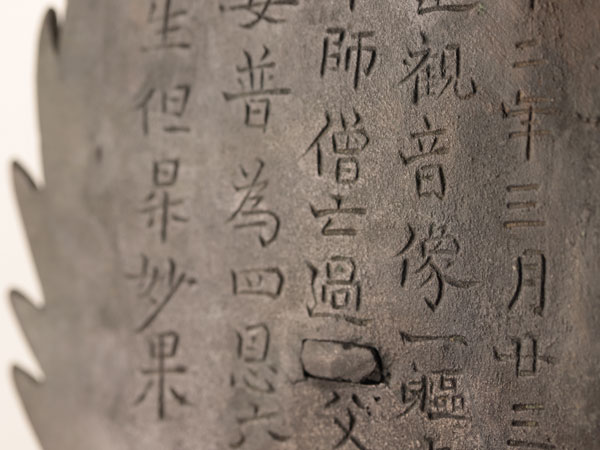 二年三月廿三
觀音像一軀
師僧亡過父
普為四恩六
生但杲妙果